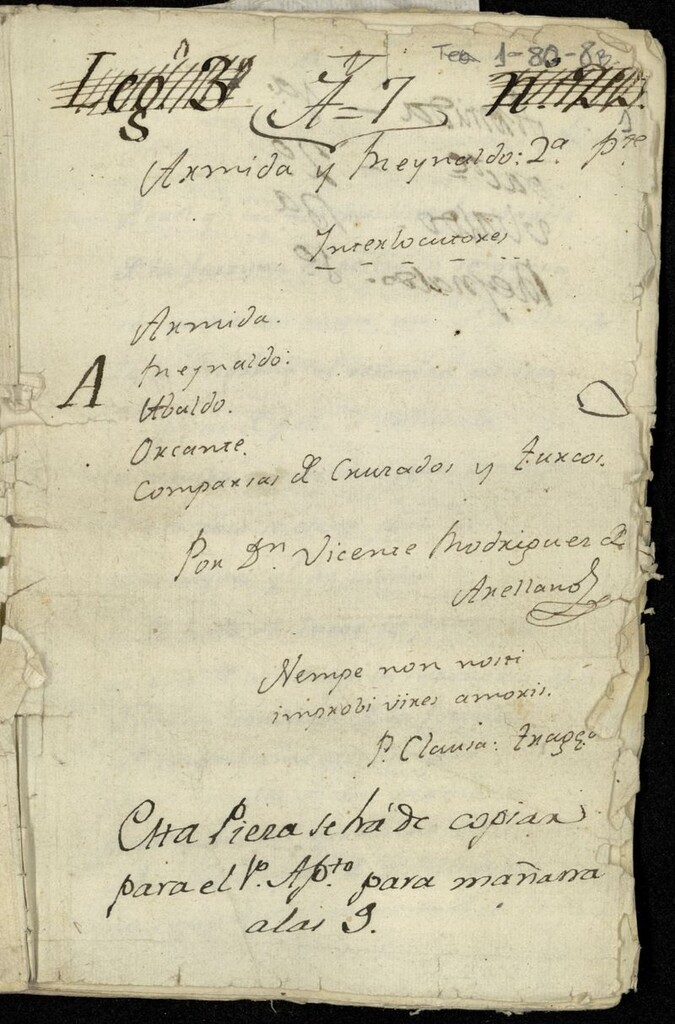 Tea 1-80-8B
Leg.º 3º A=7 nº 22.
Armida y Reynaldo: 2.ª p.te
Interlocutores
Armida.
Reynaldo:
A
Ubaldo.
Orcante.
Comparsas de Cruzados y Turcos.
Por D.n Vicente Rodriguez de
Arellano
Nempe non nosti
improbi vires amoris.
P. Clausa: Trag.
Esta Pieza se há de copiar
para el Pº. Ap.to para mañana
a las 9.